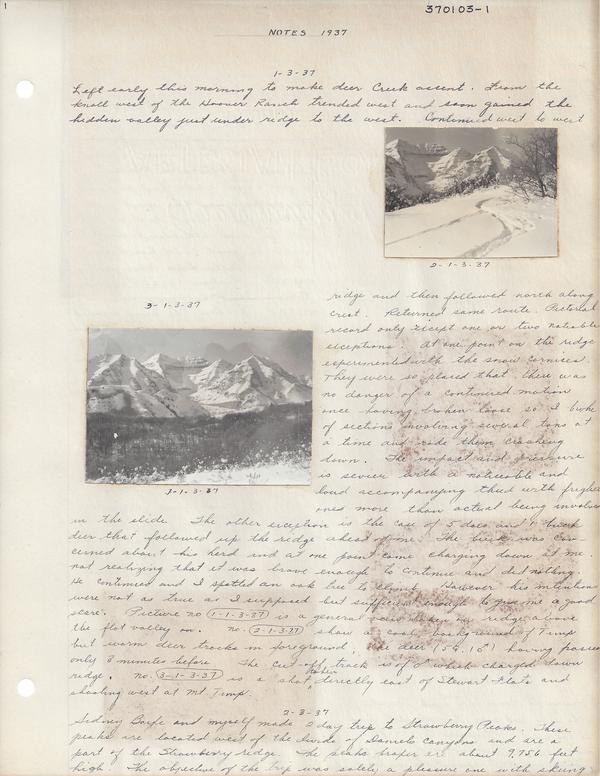 1
370103-1
NOTES 1937
1-3-37
Left early this morning to make deer Creek ascent. From the
knoll west of the Hoover Ranch trended west and soon gained the
hidden valley just under ridge to the west. Continued west to west
2-1-3-37
3-1-3-37
ridge and then followed north along
crest. Returned same route. Pictorial
record only except one or two noticable
exceptions. At one point on the ridge
experimented with the snow cornices.
They were so placed that there was
no danger of a continued motion
once having broken loose so I broke
of sections involving several tons at
a time and rode them crashing
down. The impact and pressure
is severe with a noticable and
loud accompanying thud with
ones more than actual being involved
1-1-3-37
in the slide. The other exception is the case of 5 does and 1 buck
deer that followed up the ridge ahead of me. The buck was con-
cerned about his herd and at one point came charging down at me.
not realizing that it was brave enough to continue and did nothing.
He continued and I spotted an oak tree to climb. However his intentions
were not as true as I supposed but sufficient enough to give me a good
scare. Picture no 1-1-3-37 is a general view taken on ridge above
the flat valley on. no. 2-1-3-37 show a cool background of Timp
but warm deer tracks in foreground, the deer (5♀, 1♂) having passed
only 3 minutes before. The cut-off track is of ♂ which charged down
ridge. no. 3-1-3-37 is a shot taken directly east of Stewart Flats and
shooting west at Mt Timp.
2-3-37
Sidney and myself made 2 day trip to Strawberry Peaks. These
peaks are located west of the divide of Daniels Canyon and are a
part of the Strawberry ridge. The peaks proper are about 9,756 feet
high. The objective of the trip was solely a pleasure one with skiing